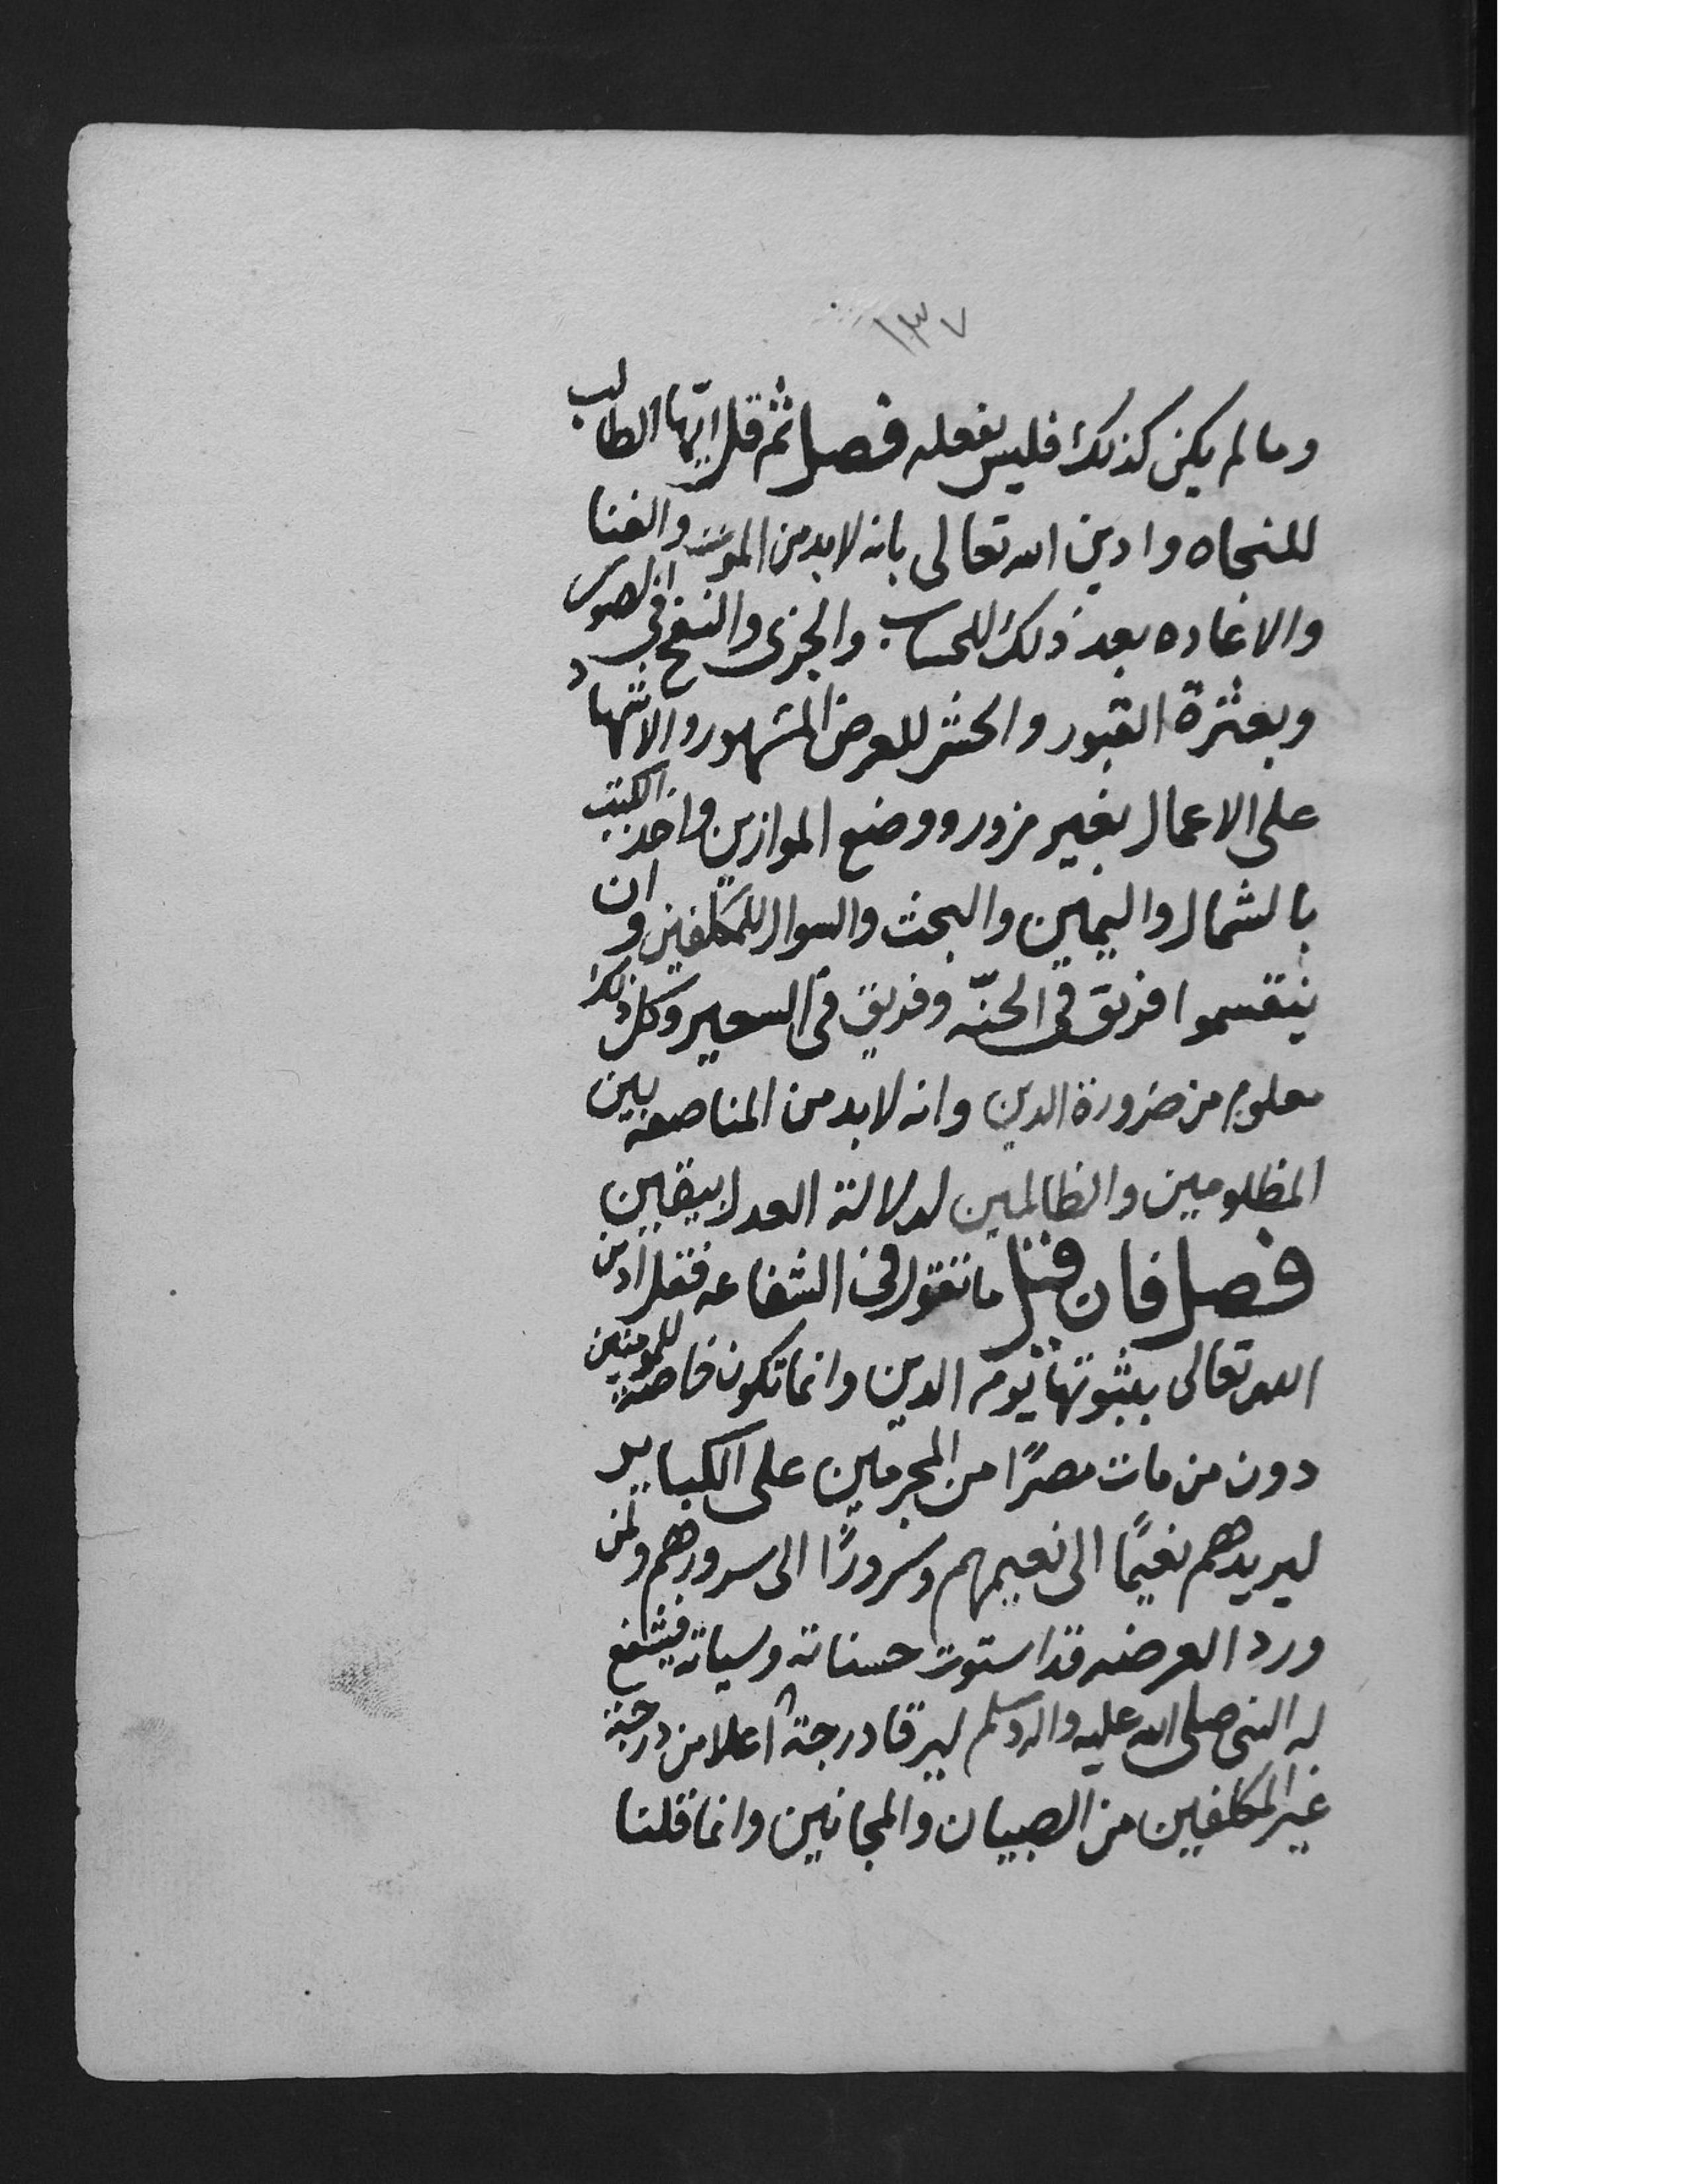 ١٣٧
وما لم يكن كذلك فليس بفعله فصل ثم قل ايّها الطالب
للنجاه وادين الله تعالى بانه لا بد من الموت والفنا
والاعاده بعد ذلك للحساب والجزى والنفخ في الصور
وبعثرة القبور والحشر للعرض المشهور والاشهاد
على الاعمال بغير مزور ووضع الموازين واخذ الكتب
بالشمال واليمين والبحث والسوال للمكلفين وان
ينقسموا فريق في الجنّه وفريق في السعير وكل ذلك
معلوم من ضرورة الدين وانه لا بد من المناصفه بين
المظلومين والظالمين لدلالة العدل بيقين
فصل فان قيل ما تقول في الشفاعه فقل ادين
الله تعالى بثبوتها يوم الدين وانما تكون خاصة للمومنين
دون من مات مصرًا من المجرمين على الكباير
ليريدهم نعيمًا الى نعيمهم وسرورًا الى سرورهم ولمن
ورد العرضه قد استوت حسناته وسياته فيشفع
له النبي صلى الله عليه واله وسلم ليرقا درجة اعلا من درجة
غير المكلفين من الصبيان والمجانين وانما قلنا